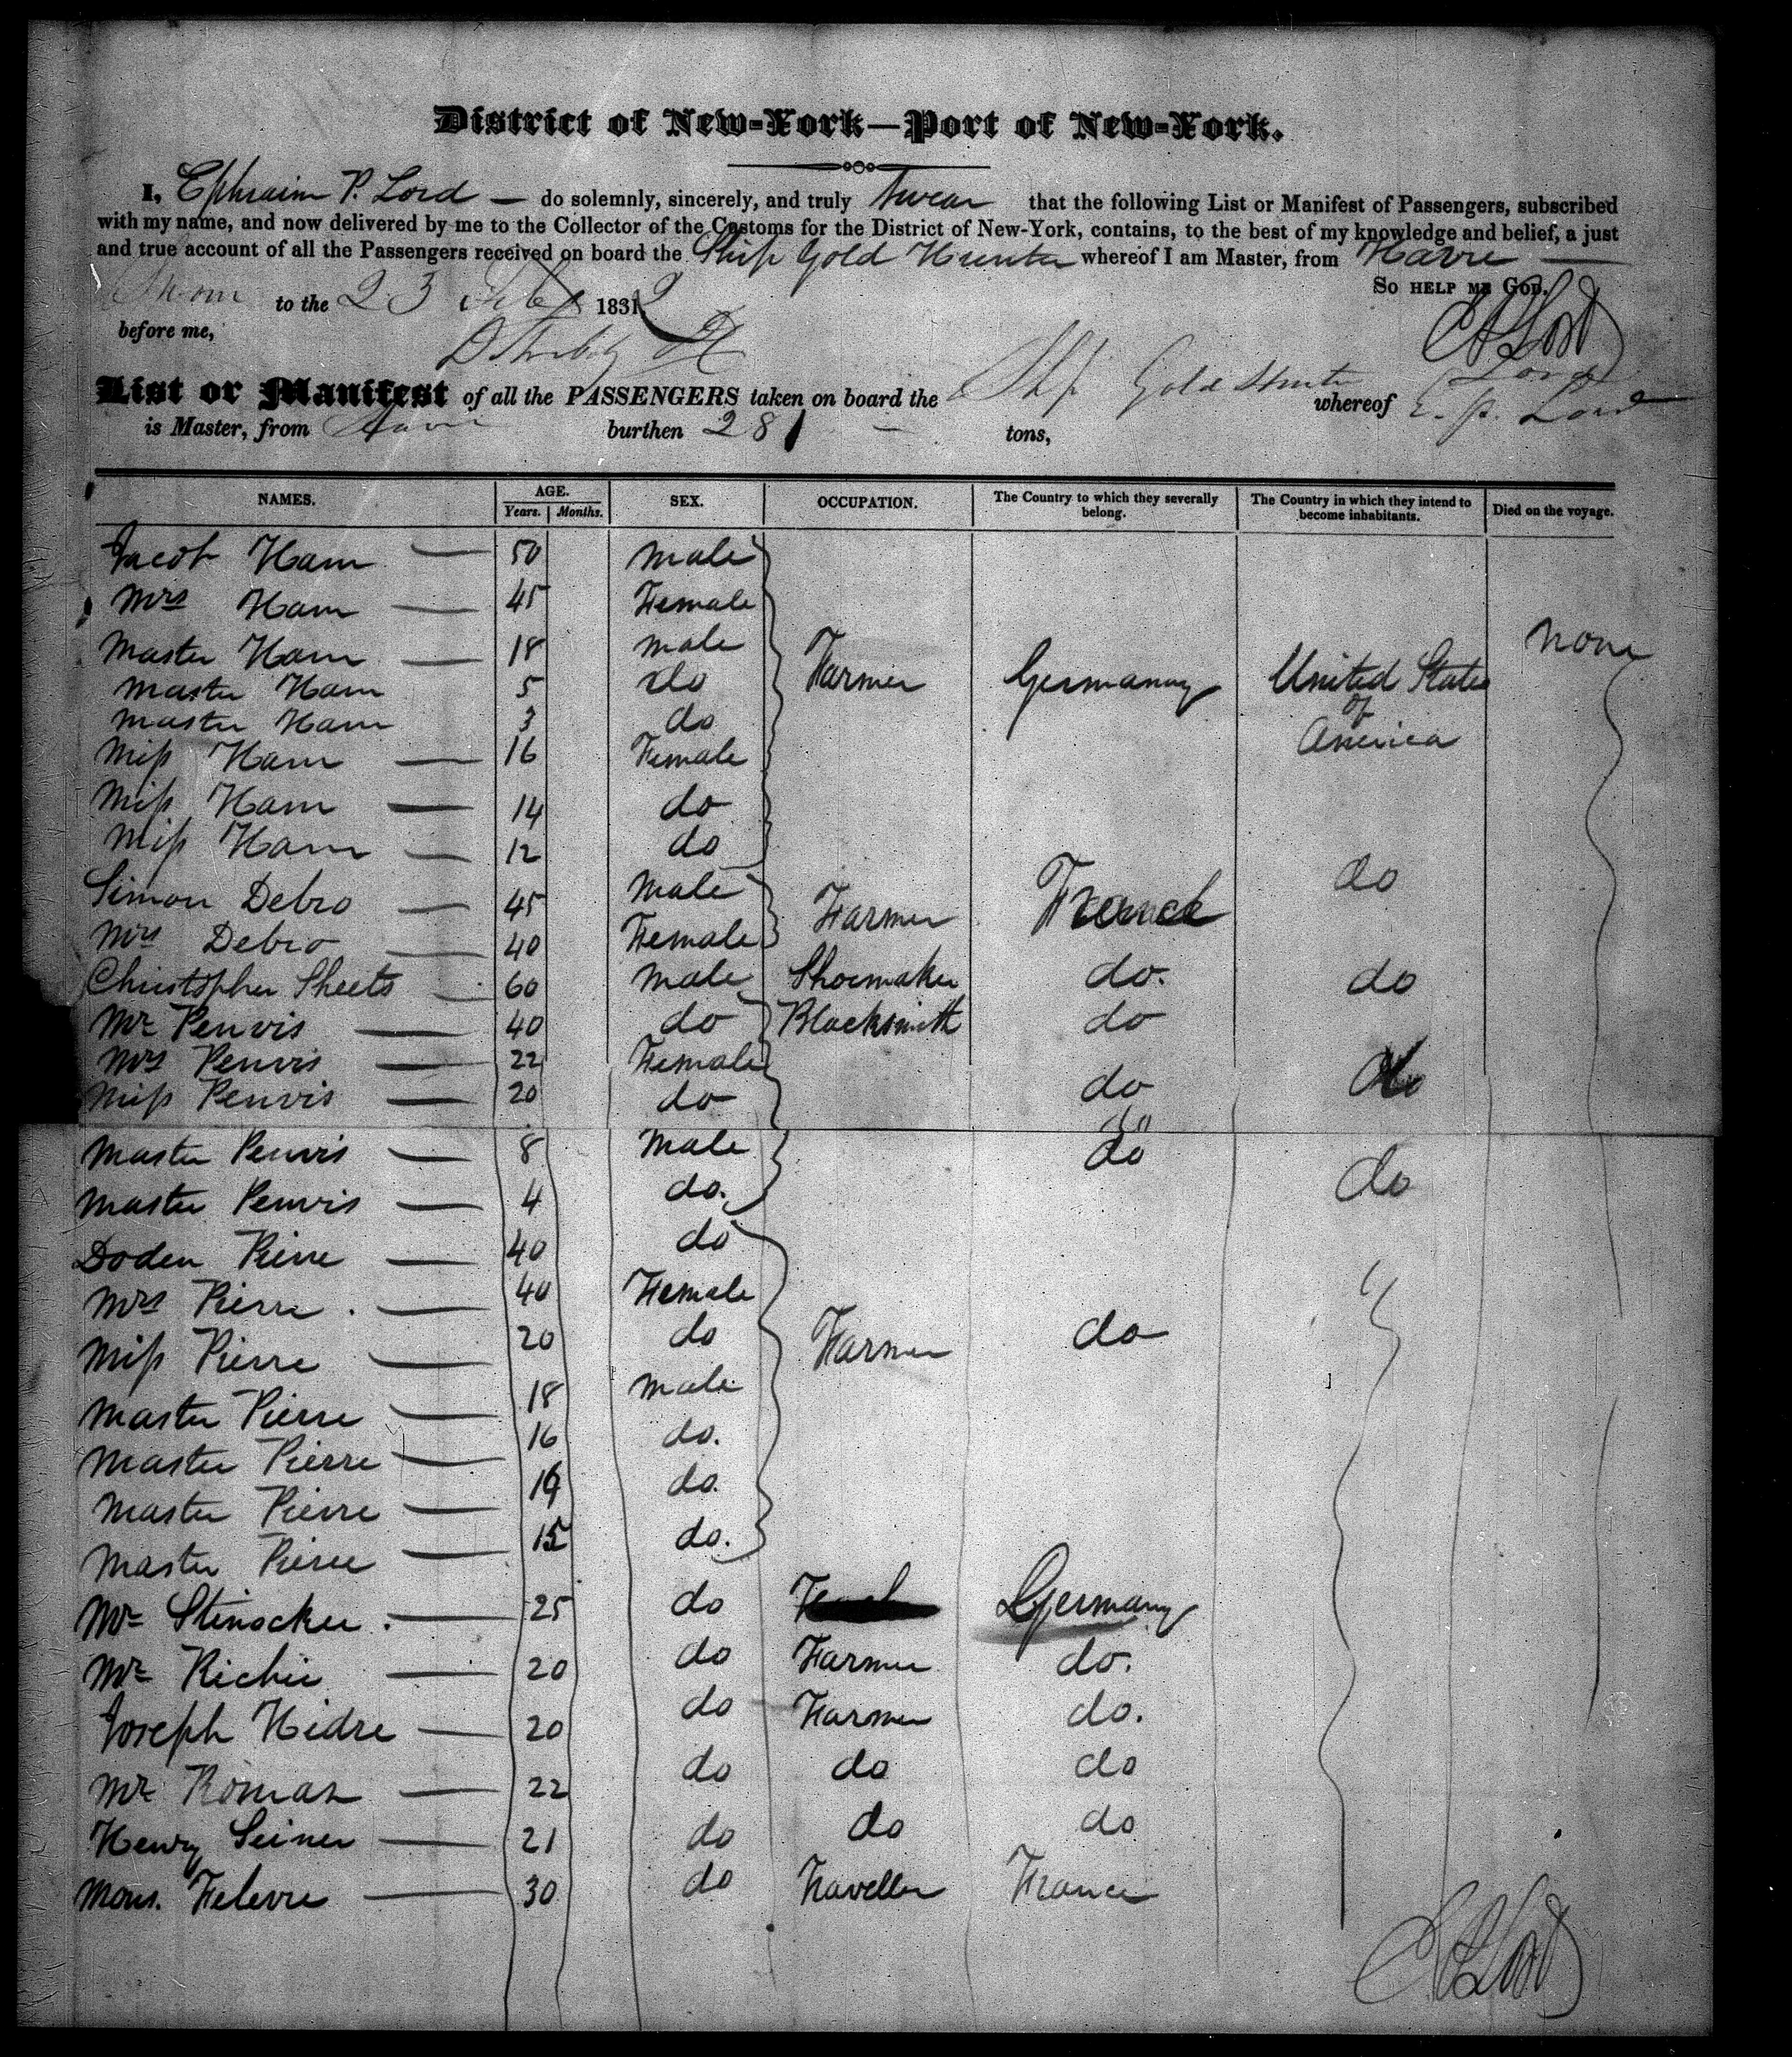 District of New-York—Port of New-York.
I, Ephraim P. Lord — do solemnly, sincerely, and truly Swear that the following List or Manifest of Passengers, subscribed
with my name, and now delivered by me to the Collector of the Customs for the District of New-York, contains, to the best of my knowledge and belief, a just
and true account of all the Passengers received on board the Ship Gold Hunter whereof I am Master, from Havre —
So help me God.
Sworn to the 23 Feby 1832
before me,
EPLord
List or Manifest of all the PASSENGERS taken on board the Ship Gold Hunter whereof E. P. Lord
is Master, from Havre burthen 281 — tons,
NAMES. AGE. Years. Months. SEX. OCCUPATION. The Country to which they severally belong. The Country in which they intend to become inhabitants. Died on the voyage.
Jacob Ham — 50 male
Mrs Ham — 45 Female
Master Ham — 18 male Farmer Germany United States of America none
Master Ham 5 do
Master Ham 3 do
Miss Ham — 16 Female
Miss Ham — 14 do
Miss Ham — 12 do
Simon Debro — 45 Male Farmer French do
Mrs Debro — 40 Female
Christopher Sheets — 60 male Shoemaker do. do
Mr Penvis — 40 do Blacksmith do
Mrs Penvis — 22 Female do
Miss Penvis — 20 do do
do
Master Penvis — 8 Male do
Master Penvis — 4 do. do
Doden Pierre — 40 do
Mrs Pierre . — 40 Female
Miss Pierre — 20 do Farmer do
Master Pierre — 18 male
Master Pierre — 16 do.
Master Pierre — do.
Master Pierre — 15 do.
Mr Stinocker . — 25 do Germany
Mr Richie — 20 do Farmer do.
Joseph Hidre — 20 do Farmer do.
Mr Roman — 22 do do do
Henry Seiner — 21 do do do
Mons. Felevre — 30 do Traveller France
EPLord